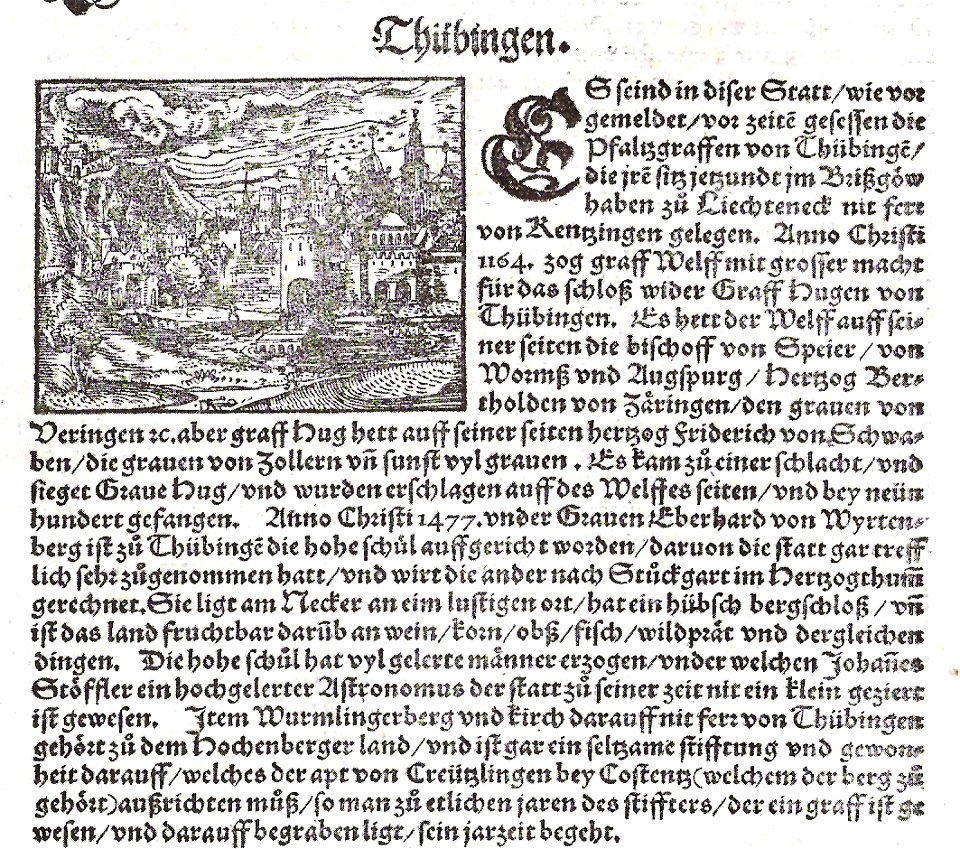 Thübingen.
ES seind in diser Statt/wie vor
gemeldet/vor zeitẽ gesessen die
Pfaltzgraffen von Thübingẽ/
die jrẽ sitz jetzundt jm Brißgöw
haben zů Liechteneck nit ferr
von Kentzingen gelegen. Anno Christi
1164. zog graff Welff mit grosser macht
für das schloß wider Graff Hugen von
Thübingen. Es hett der Welff auff sei⸗
ner seiten die bischoff von Speier/von
Wormß vnd Augspurg/Hertzog Ber⸗
tholden von Zäringen/den grauen von
Veringen ꝛc. aber graff Hug hett auff seiner seiten hertzog Friderich von Schwa⸗
ben/die grauen von Zollern vñ sunst vyl grauen. Es kam zů einer schlacht/vnd
sieget Graue Hug/vnd wurden erschlagen auff des Welffes seiten/vnd bey neün
hundert gefangen. Anno Christi 1477. vnder Grauen Eberhard von Wyrten⸗
berg ist zů Thübingẽ die hohe schůl auffgericht worden/daruon die statt gar treff
lich sehr zůgenommen hatt/vnd wirt die ander nach Stůckgart im Hertzogthum̃
gerechnet. Sie ligt am Necker an eim lustigen ort/hat ein hübsch bergschloß/vñ
ist das land fruchtbar darũb an wein/korn/obß/fisch/wildprät vnd dergleichen
dingen. Die hohe schůl hat vyl gelerte männer erzogen/vnder welchen Johañes
Stöffler ein hochgelerter Astronomus der statt zů seiner zeit nit ein klein geziert
ist gewesen. Item Wurmlingerberg vnd kirch darauff nit ferr von Thübingen
gehört zů dem Hochenberger land/vnd ist gar ein seltzame stifftung vnd gewon⸗
heit darauff/welches der apt von Creützlingen bey Costentz(welchem der berg zů
gehört)außrichten můß/so man zů etlichen jaren des stiffters/der ein graff ist ge
wesen/vnd darauff begraben ligt/sein jarzeit begeht.